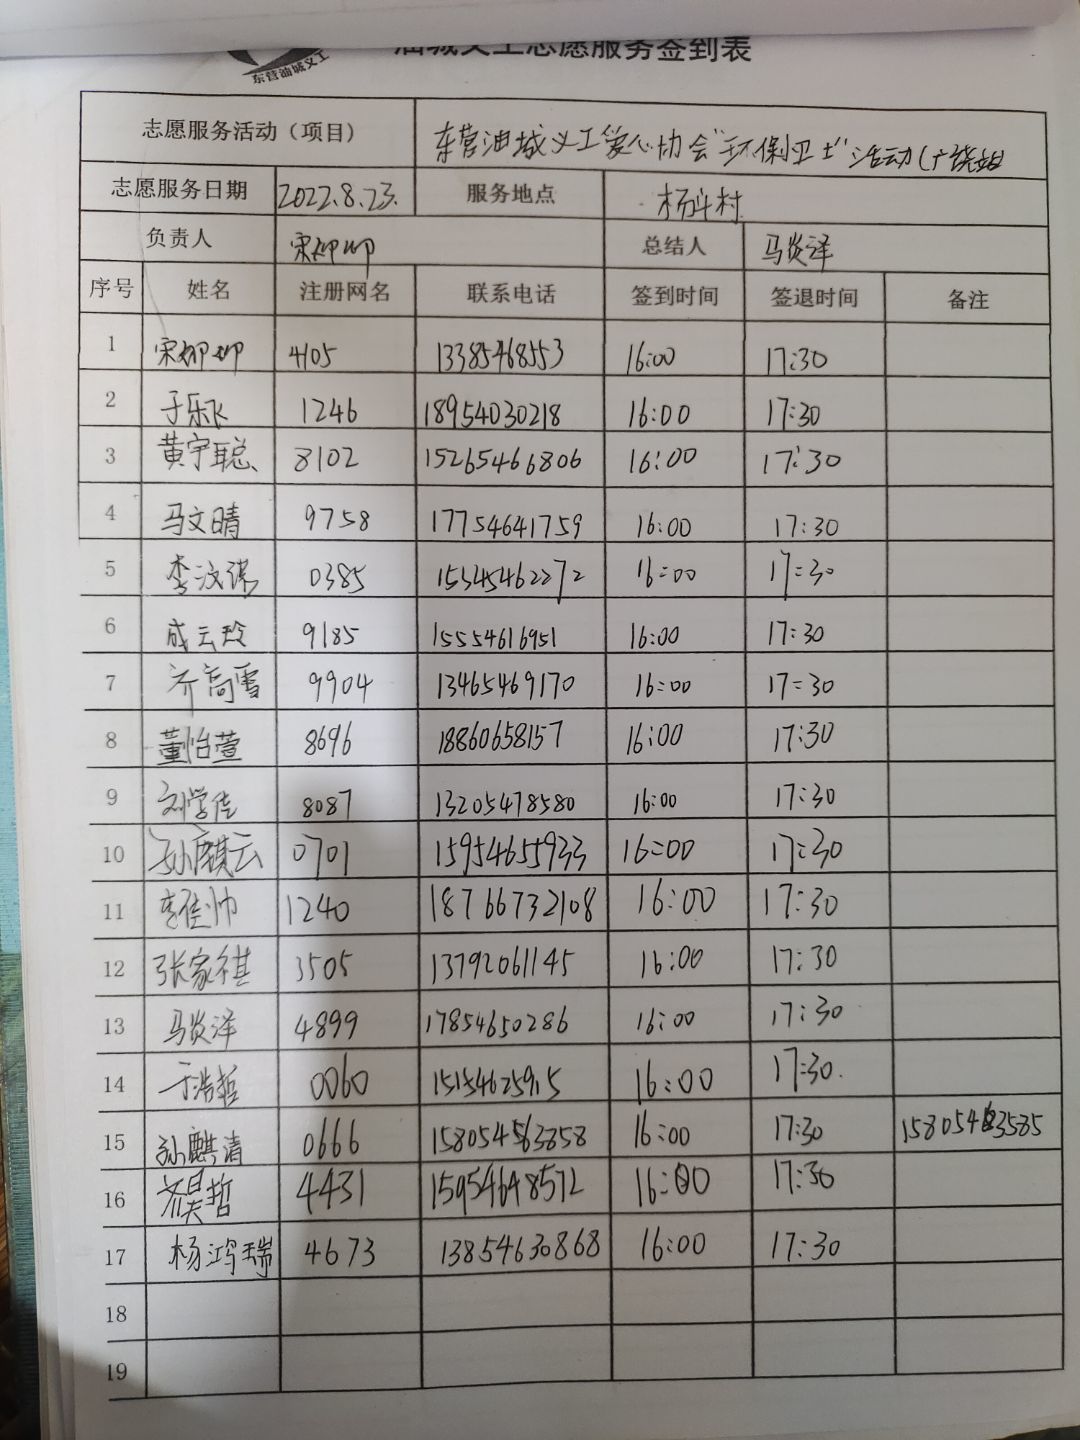 油城义工志愿服务签到表
东营油城义工
志愿服务活动（项目） 东营油城义工爱心协会"环保卫士"活动(广饶站
志愿服务日期 2022.8.23. 服务地点 杨斗村
负责人 宋柳柳 总结人 马炎泽
序号 姓名 注册网名 联系电话 签到时间 签退时间 备注
1 宋柳柳 4105 13385468553 16:00 17:30
2 于乐飞 1246 18954030218 16:00 17:30
3 黄宇聪 8102 15265466806 16:00 17:30
4 马文晴 9758 17754641759 16:00 17:30
5 李汶 0385 15345462272 16:00 17:30
6 成云玲 9185 15554616951 16:00 17:30
7 齐高雪 9904 13465469170 16:00 17:30
8 董怡萱 8696 18860658157 16:00 17:30
9 刘学佳 8087 13205478580 16:00 17:30
10 孙麒云 0701 15954655933 16:00 17:30
11 李佳帅 1240 18766732108 16:00 17:30
12 张家祺 3505 13792061145 16:00 17:30
13 马炎泽 4899 17854650286 16:00 17:30
14 于浩哲 0060 16:00 17:30.
15 孙麒清 0666 158054563858 16:00 17:30
16 齐昊哲 4431 15954648572 16:00 17:30
17 杨鸿瑞 4673 13854630868 16:00 17:30
18
19